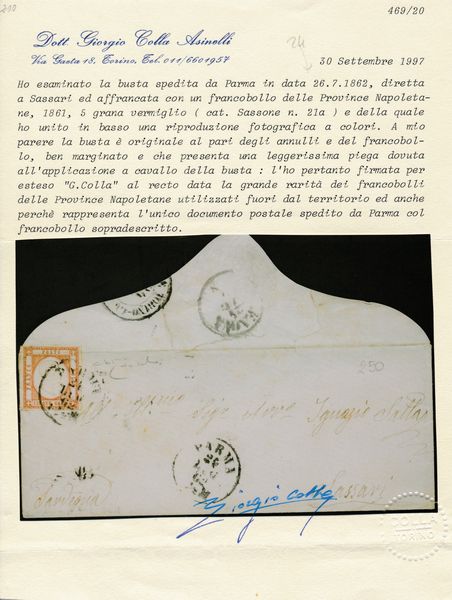 210
469/20
Dott. Giorgio Colla Asinelli
Via Gaeta 18. Torino. Tel. 011/6601957
24
30 Settembre 1997
Ho esaminato la busta spedita da Parma in data 26.7.1862, diretta
a Sassari ed affrancata con un francobollo delle Province Napoleta-
ne, 1861, 5 grana vermiglio ( cat. Sassone n. 21a ) e della quale
ho unito in basso una riproduzione fotografica a colori. A mio
parere la busta è originale al pari degli annulli e del francobol-
lo, ben marginato e che presenta una leggerissima piega dovuta
all'applicazione a cavallo della busta : l'ho pertanto firmata per
esteso "G.Colla" al recto data la grande rarità dei francobolli
delle Province Napoletane utilizzati fuori dal territorio ed anche
perchè rappresenta l'unico documento postale spedito da Parma col
francobollo sopradescritto.
POSTE
250
Ignazio
PARMA
Sardegna
Sassari
Giorgio Colla
TORINO